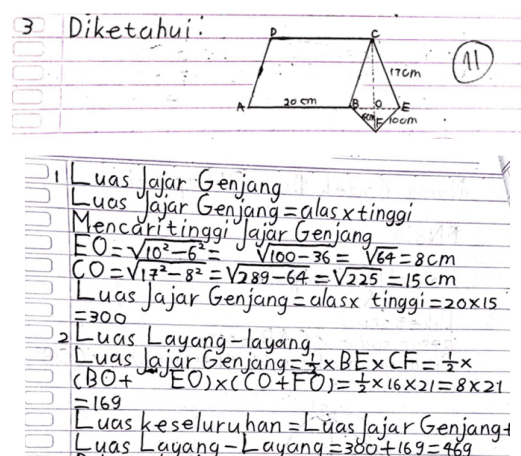 3 Diketahui:
D C
17cm
11
A 20 cm B O E
6cm 10cm
F
1 Luas Jajar Genjang
Luas Jajar Genjang = alas x tinggi
Mencari tinggi Jajar Genjang
EO = √10² - 6² = √100 - 36 = √64 = 8 cm
CO = √17² - 8² = √289 - 64 = √225 = 15 cm
Luas Jajar Genjang = alas x tinggi = 20 x 15
= 300
2 Luas Layang-layang
Luas Jajar Genjang = ½ x BE x CF = ½ x
(BO + EO) x (CO + FO) = ½ x 16 x 21 = 8 x 21
= 169
Luas keseluruhan = Luas Jajar Genjang +
Luas Layang - Layang = 300 + 169 = 469